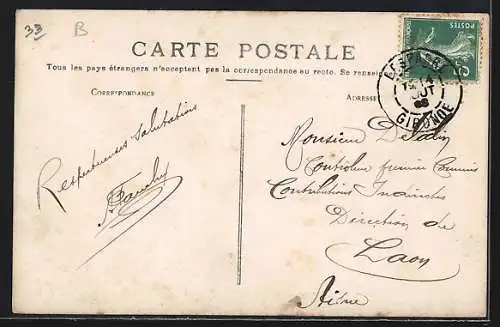 33
B
CARTE POSTALE
Tous les pays étrangers n'acceptent pas la correspondance au recto. Se renseig
CORRESPONDANCE
ADRESSE
POSTES
LESPARRE
14
OUT
08
GIRONDE
Respectueuses salutations
Monsieur
Contrôleur premier Commis
Contributions Indirectes
Direction de
Laon
Aisne